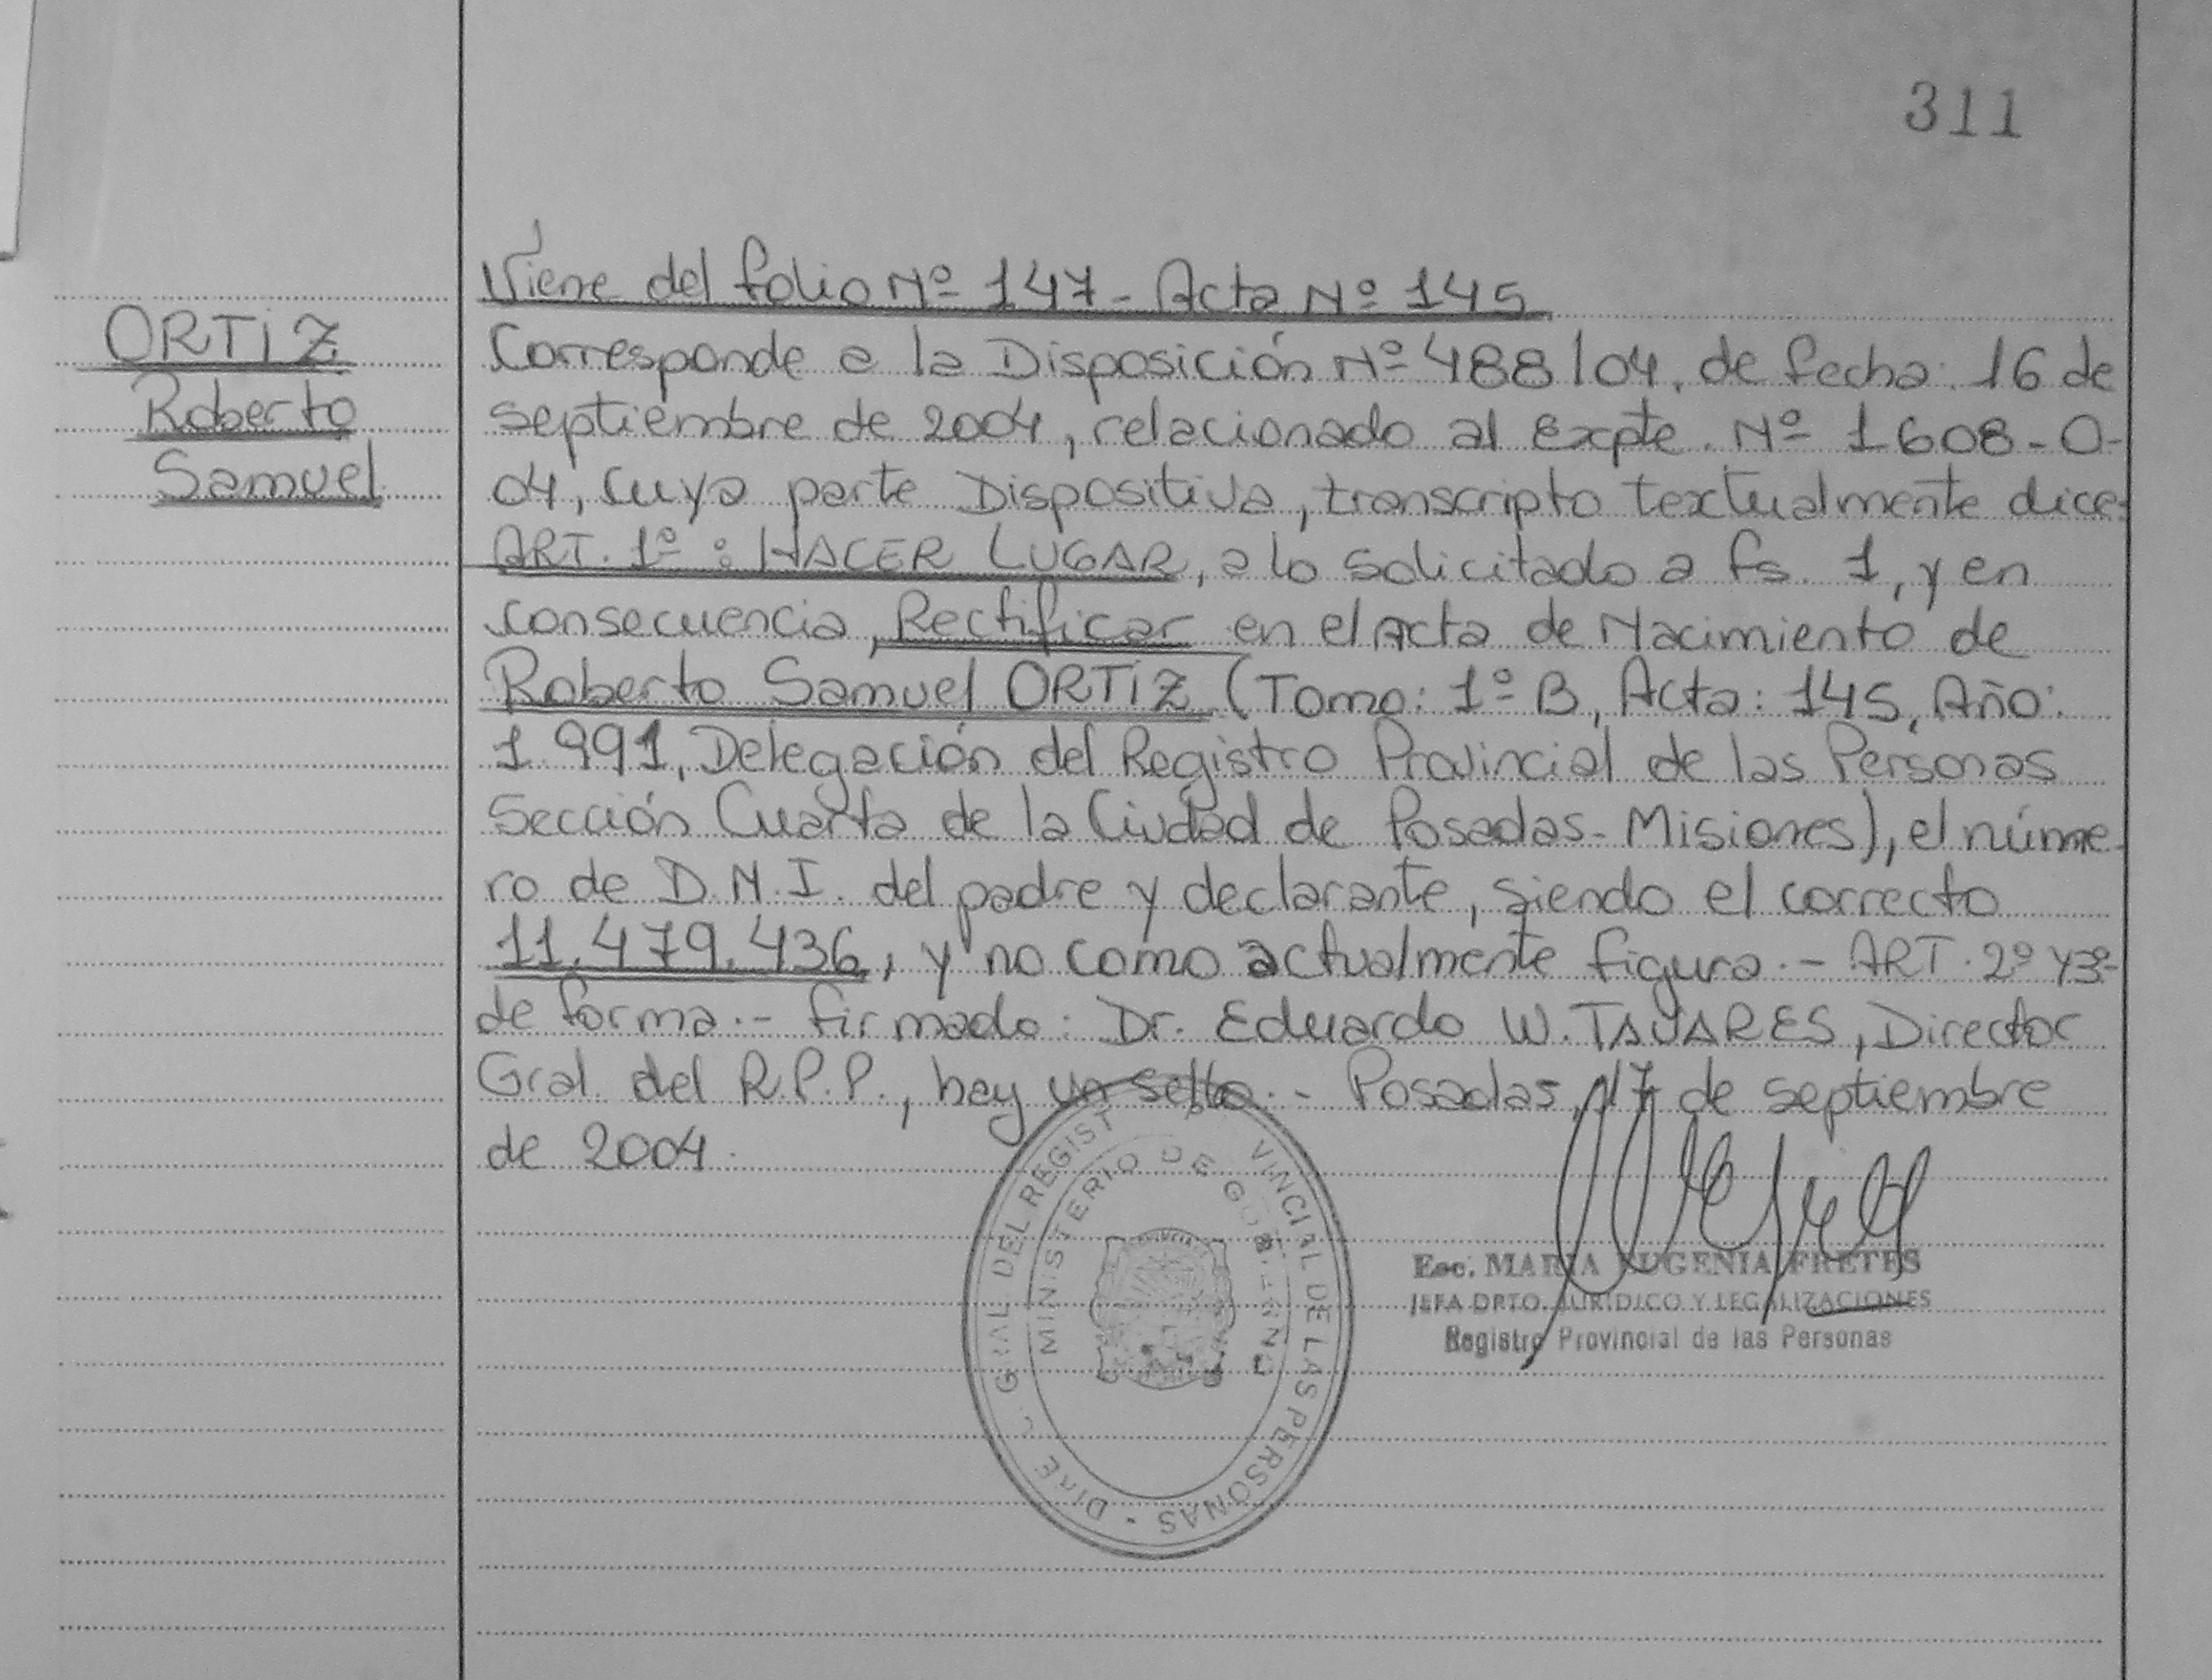 311
ORTIZ
Roberto
Samuel
Viene del folio Nº 147 - Acta Nº 145
Corresponde a la Disposición Nº 488/04, de fecha: 16 de
septiembre de 2004, relacionado al Expte. Nº 1608-O-
04, cuya parte Dispositiva, transcripto textualmente dice:
ART. 1º: HACER LUGAR, a lo solicitado a fs. 1, y en
consecuencia, Rectificar en el Acta de Nacimiento de
Roberto Samuel ORTIZ (Tomo: 1º B, Acta: 145, Año:
1.991, Delegación del Registro Provincial de las Personas
Sección Cuarta de la Ciudad de Posadas-Misiones), el núme-
ro de D.N.I. del padre y declarante, siendo el correcto
11.479.436, y no como actualmente figura.- ART. 2º y 3º-
de forma.- firmado: Dr. Eduardo W. TAVARES, Director
Gral. del R.P.P., hay un sello.- Posadas, 17 de septiembre
de 2004.
GRAL DEL REGIST VINCIAL DE LAS PERSONAS -
MINISTERIO DE GOBIERNO
Esc. MARIA EUGENIA FRETES
JEFA DPTO. JURIDICO Y LEGALIZACIONES
Registro Provincial de las Personas